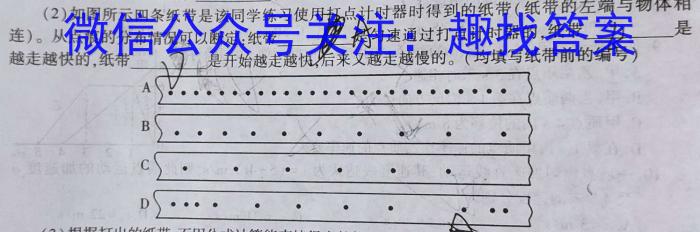 (2)如图所示四条纸带是该同学练习使用打点计时器时得到的纸带(纸带的左端与物体相
连)。从点的分布情况可以断定:纸带 速通过打点计时器的,纸 是
越走越快的,纸带 是开始越走越快,后来又越走越慢的。(均填写纸带前的编号)
微信公众号关注:趣找答案
A
B
C
D